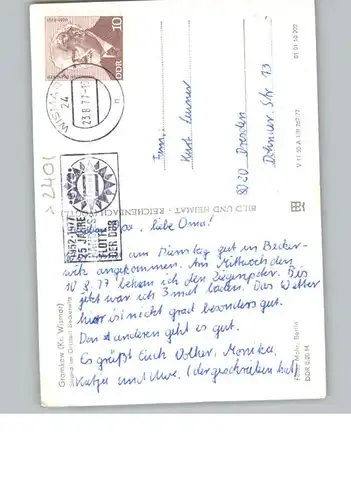 10
DDR
WISMAR
24
23.8.77-1
n
>2401
1952-1977
25 JAHRE
FLOTTE
DER DDR
Fam.
Kurt
8020 Dresden
Dohnaer Str 13
BILD UND HEIMAT · REICHENBACH
V 11 30 A 1/B 367/77
01 01 10 202
Gramkow (Kr. Wismar)
Strand im Ortsteil Beckerwitz
Foto: Mohr, Berlin
DDR 0,20 M
Lieber Opa, liebe Oma!
am Dienstag gut in Becker-
witz angekommen. Am Mittwoch den
10.8.77 bekam ich den Bis
jetzt war ich 3 mal baden. Das Wetter
hier ist nicht grad besonders gut.
Den anderen geht es gut.
Es grüßt Euch Volker, Monika,
Katja und Uwe. (der geschrieben hat)